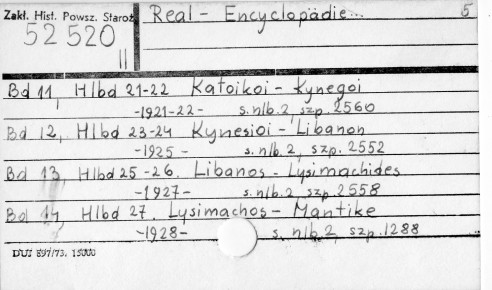 Zakł. Hist. Powsz. Staroż.
Real - Encyclopädie... 5
52520
II
Bd 11, Hlbd 21-22 Katoikoi - Kynegoi
-1921-22- s. nlb. 2, szp. 2560
Bd 12, Hlbd 23-24 Kynesioi - Libanon
-1925- s. nlb. 2, szp. 2552
Bd 13, Hlbd 25-26. Libanos - Lysimachides
-1927- s. nlb. 2, szp. 2558
Bd 14, Hlbd 27. Lysimachos - Mantike
-1928- s. nlb. 2, szp. 1288
DUJ 897/73. 15000